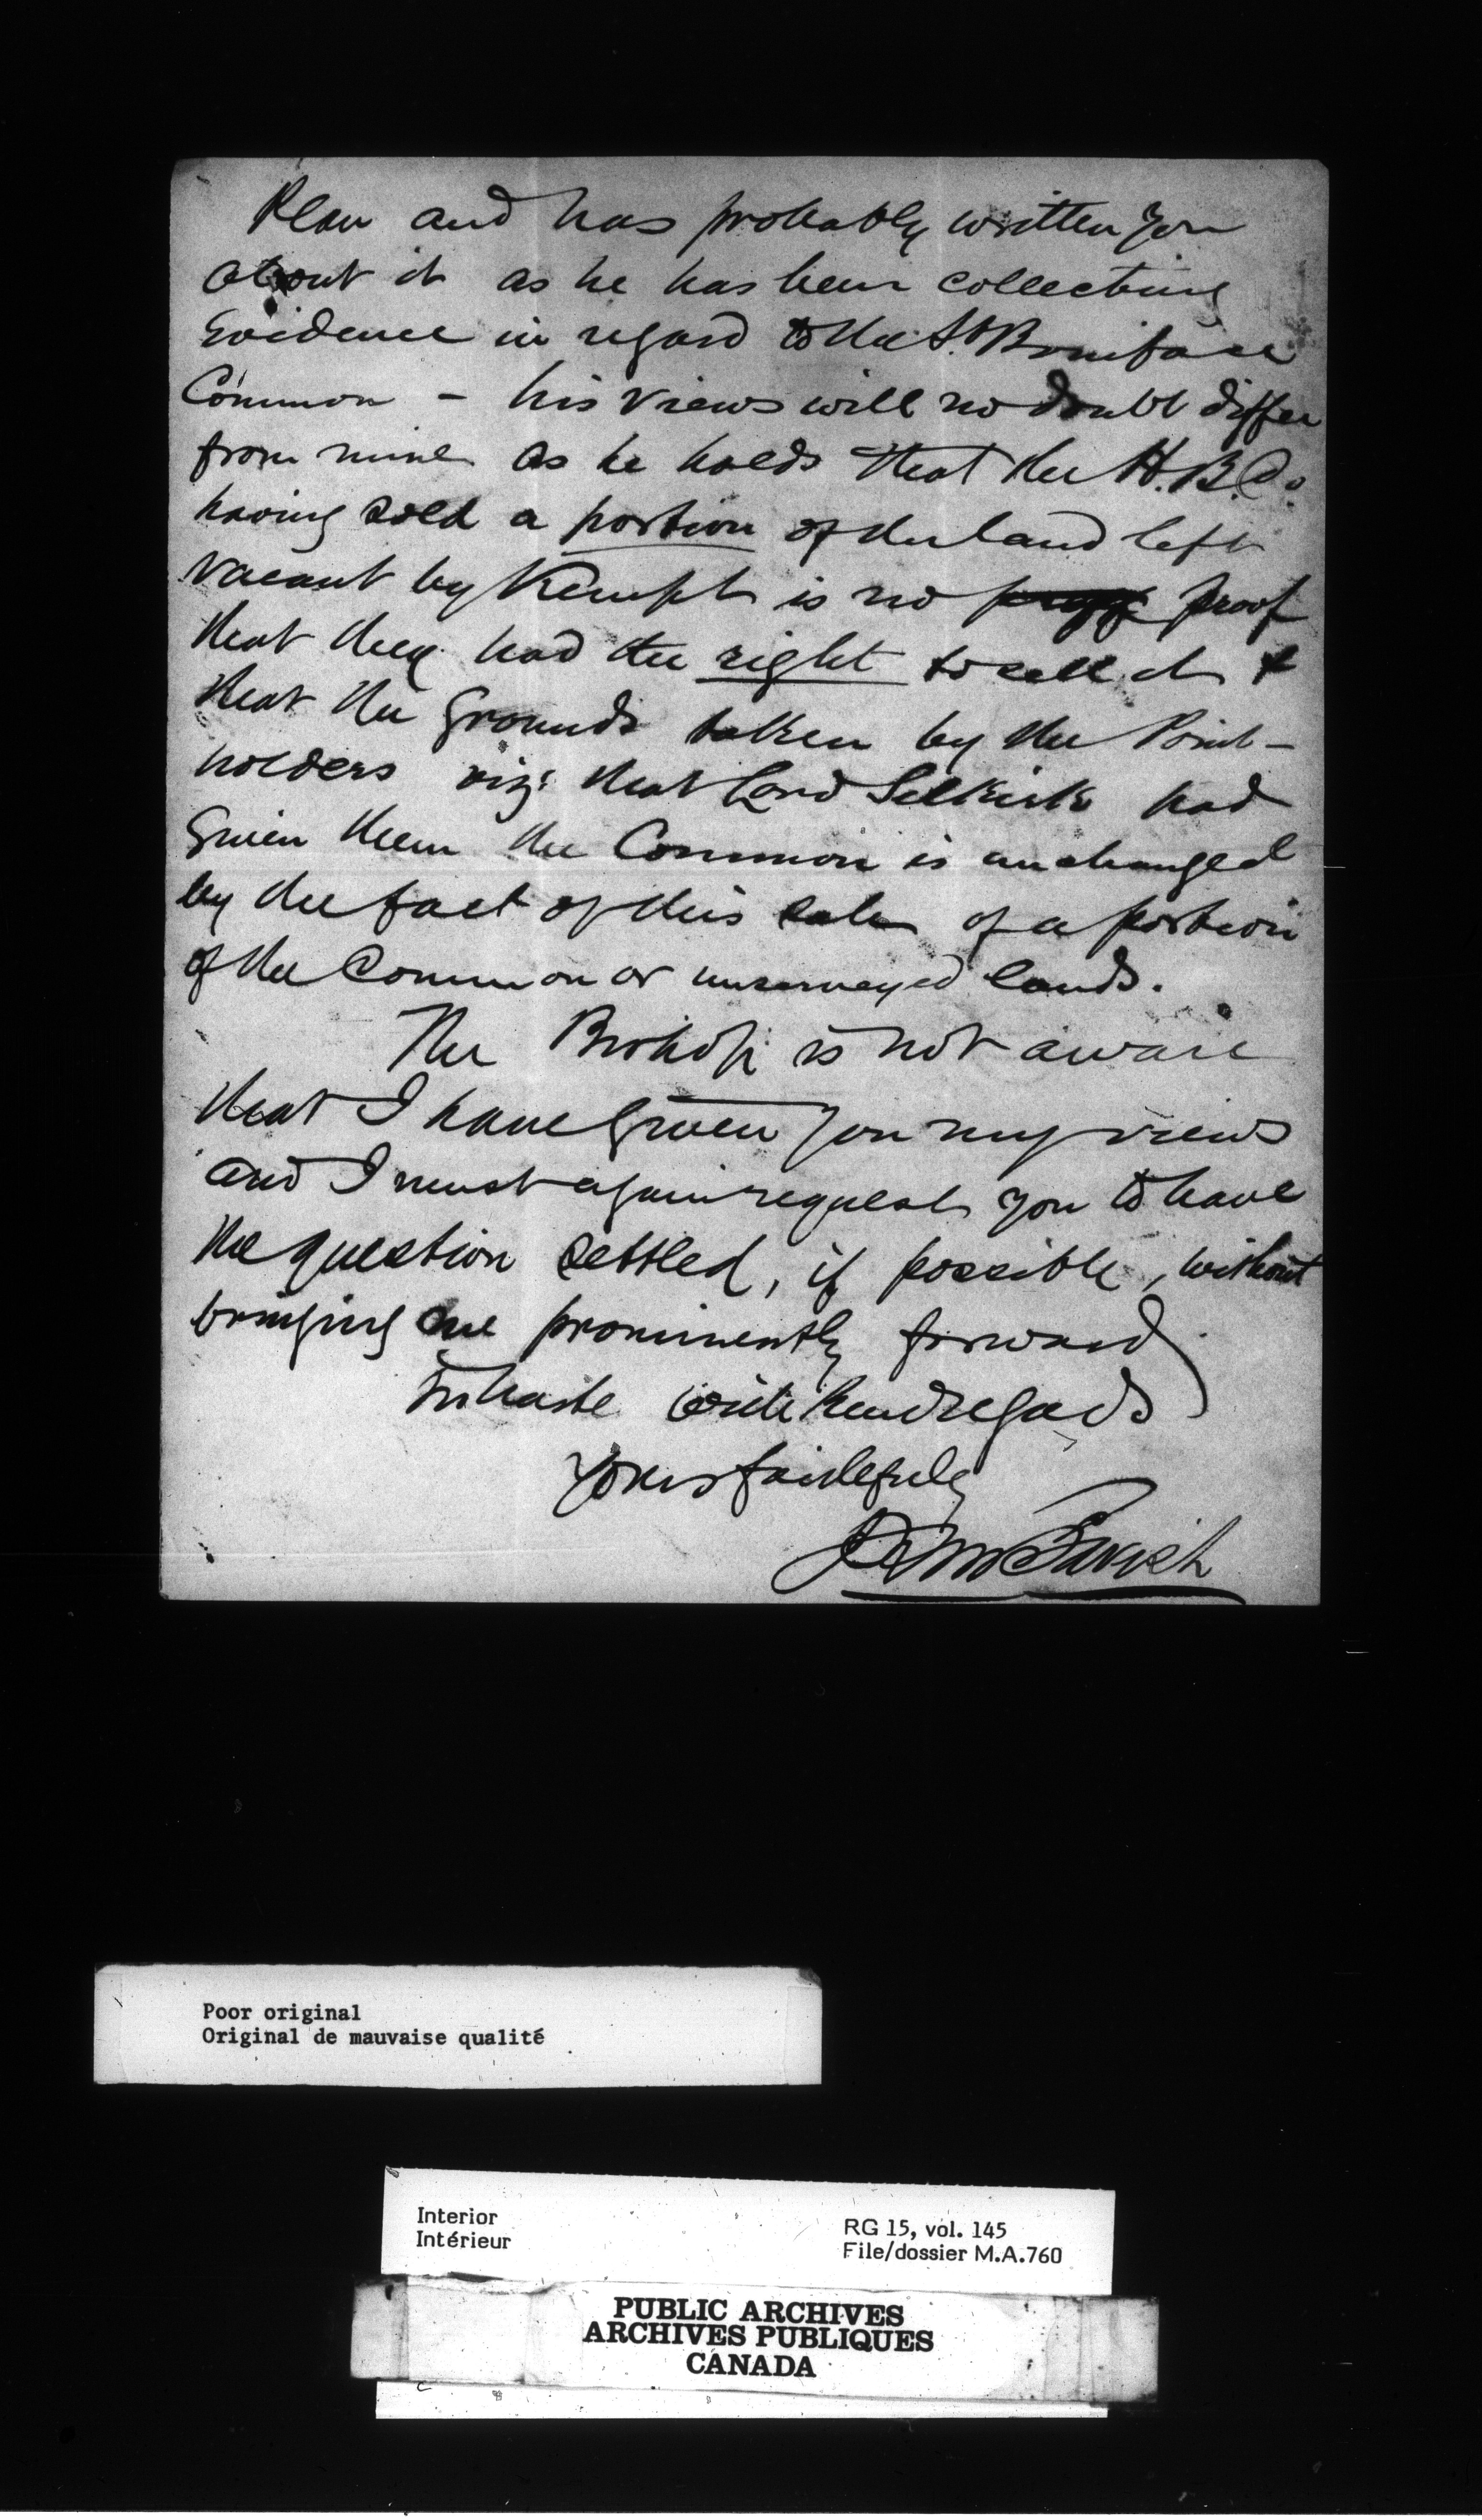 Plan and has probably written you
about it as he has been collecting
Evidence in regard to the St. Boniface
Common - his views will no doubt differ
from mine as he holds that the H.B.Co.
having sold a portion of the land left
vacant by Kempt is no proof
that they had the right to sell it &
that the grounds taken by the Point-
holders viz: that Lord Selkirk had
given them the Common is unchanged
by the fact of this sale of a portion
of the Common or unsurveyed lands.
The Bishop is not aware
that I have given you my views
and I must again request you to have
the question settled, if possible, without
bringing me prominently forward
In haste with kind regards
Yours faithfully
Poor original
Original de mauvaise qualité
Interior
Intérieur
RG 15, vol. 145
File/dossier M.A.760
PUBLIC ARCHIVES
ARCHIVES PUBLIQUES
CANADA